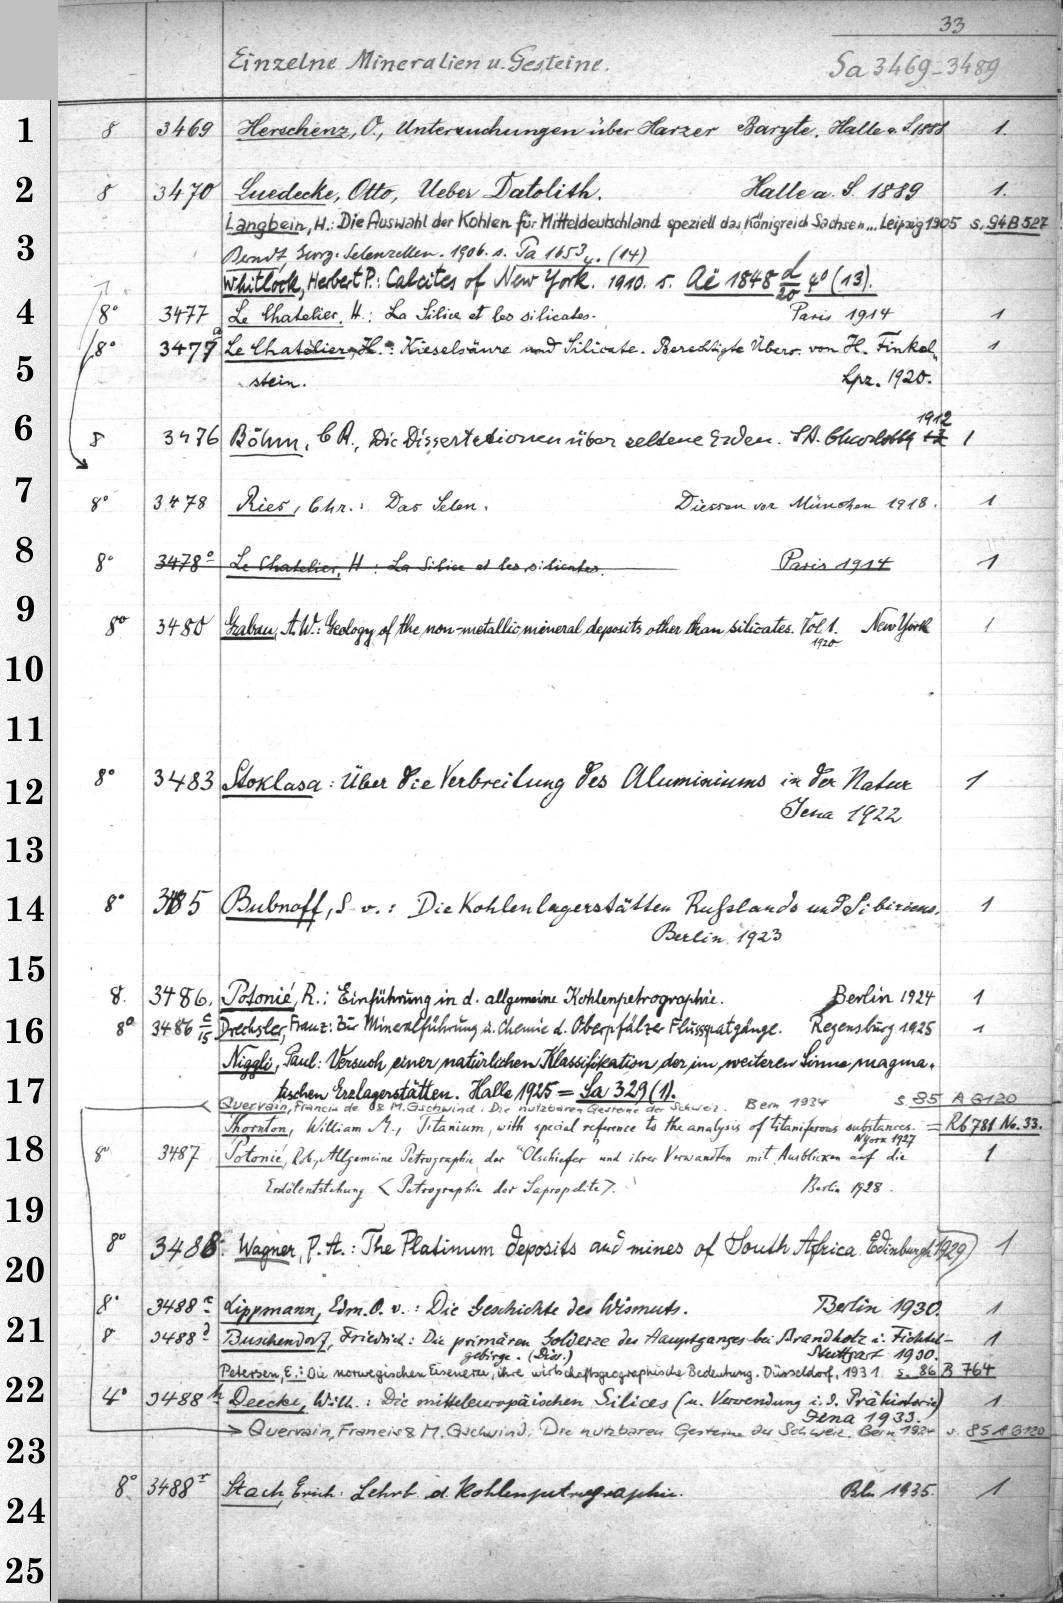 33
Einzelne Mineralien u. Gesteine. Sa 3469-3489
1 8 3469 Herschenz, O., Untersuchungen über Harzer Baryte. Halle a. S. 1888 1.
2 8 3470 Luedecke, Otto, Ueber Datolith. Halle a. S. 1889 1.
Langbein, H.: Die Auswahl der Kohlen für Mitteldeutschland speziell das Königreich Sachsen... Leipzig 1905 s. 94 B 527
3 Berndt, Georg: Selenzellen. 1906. s. Pa 1053 (14)
Whitlock, Herbert P.: Calcites of New York. 1910. s. Aë 1848 d/20 4° (13).
4 8° 3477 Le Chatelier, H.: La Silice et les silicates. Paris 1914 1
8° 3477a Le Chatelier, H.: Kieselsäure und Silicate. Berechtigte Übers. von H. Finkel-
5 stein. Lpz. 1920. 1
6 8 3476 Böhm, C R., Die Dissertationen über seltene Erden. SA. Charlottbg 1912 1
7 8° 3478 Ries, Chr.: Das Selen. Diessen vor München 1918. 1
8 8° 3478a Le Chatelier, H: La Silice et les silicates. Paris 1914 1
9 8° 3480 Grabau, A. W.: Geology of the non-metallic mineral deposits other than silicates. Vol. 1. New York 1
1920
10
11
12 8° 3483 Stoklasa: Über die Verbreitung des Aluminiums in der Natur 1
Jena 1922
13
14 8° 3485 Bubnoff, S. v.: Die Kohlenlagerstätten Rußlands und Sibiriens. 1
Berlin 1923
15
8. 3486. Potonié, R.: Einführung in d. allgemeine Kohlenpetrographie. Berlin 1924 1
16 8° 3486 c/15 Drechsler, Franz: Zur Mineralführung u. Chemie d. Oberpfälzer Flussspatgänge. Regensburg 1925 1
Niggli, Paul: Versuch einer natürlichen Klassifikation der im weiteren Sinne magma-
17 tischen Erzlagerstätten. Halle 1925 = Sa 329 (1).
Quervain, Francis de & M. Gschwind: Die nutzbaren Gesteine der Schweiz. Bern 1934 s. 85 A G120
Thornton, William M., Titanium, with special reference to the analysis of titaniferous substances. = Rb 781 No. 33.
N York 1927
18 8° 3487 Potonié, Rob., Allgemeine Petrographie der "Ölschiefer und ihrer Verwandten mit Ausblicken auf die 1
Erdölentstehung <Petrographie der Sapropelite>. Berlin 1928.
19
20 8° 3488 Wagner, P. A.: The Platinum deposits and mines of South Africa. Edinburgh 1929 1
8° 3488c Lippmann, Edm. O. v.: Die Geschichte des Wismuts. Berlin 1930. 1
21 8 3488d Buschendorf, Friedrich: Die primären Golderze des Hauptganges bei Brandholz i. Fichtel- 1
gebirge. (Diss.) Stuttgart 1930.
Petersen, E.: Die norwegischen Eisenerze, ihre wirtschaftsgeographische Bedeutung. Düsseldorf, 1931. s. 86 B 764
22 4° 3488h Deecke, Wilh.: Die mitteleuropäischen Silices (u. Verwendung i. d. Prähistorie) 1
Jena 1933.
23 Quervain, Francis & M. Gschwind: Die nutzbaren Gesteine der Schweiz. Bern 1934 s. 85 A G120
24 8° 3488r Stach, Erich: Lehrb. d. Kohlenpetrographie. Bln 1935. 1
25